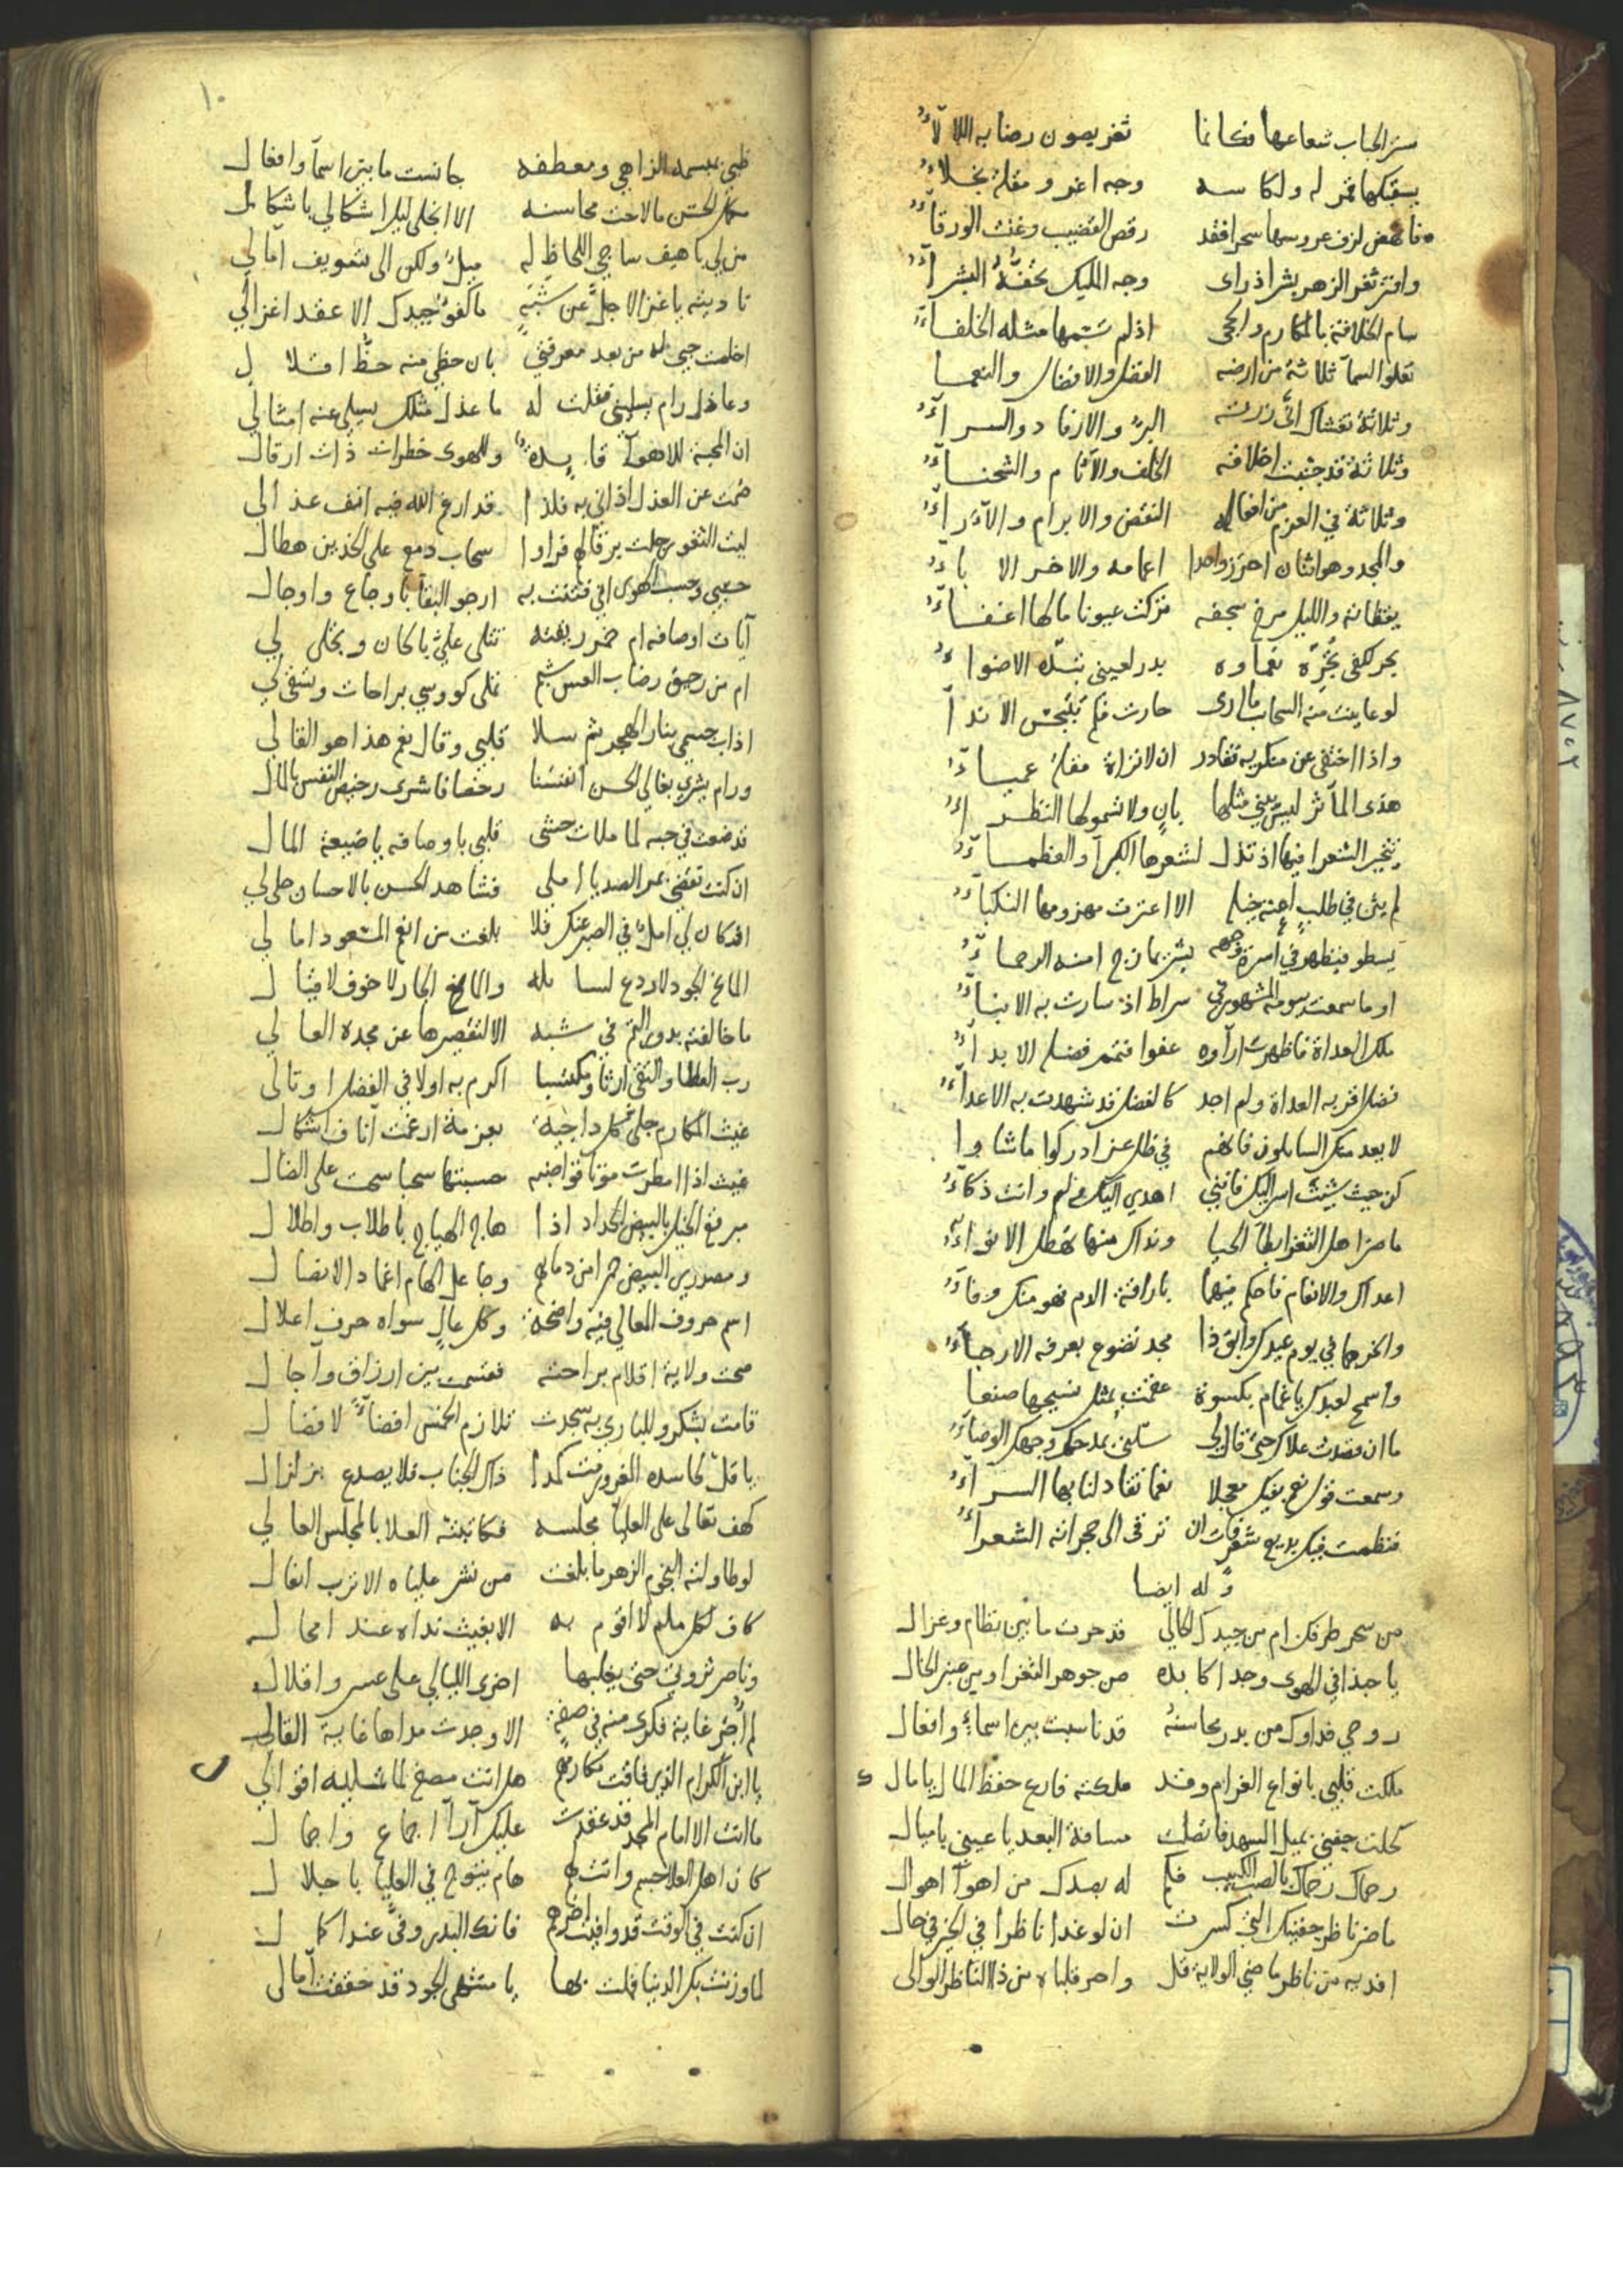 ستر الحباب شعاعها فكانما ثغر يصون رضابه اللألآءُ
يسقيكها قمر له ولكاسه وجه اغر ومقلة نجلاءُ
فانهض لزف عروسها سحرا فقد رقص القضيب وغنت الورقآءُ
وافتر ثغر الزهر بشرا ذرای وجه المليك تحفُّهُ البشرآءُ
سام الخلافة بالمكارم والحجى اذ لم تسمها مثله الخلفآءُ
تعلو السمآ ثلاثة من ارضه الفضل والافضال والنعما
وثلاثة تغشاك انّى زرته البرّ والارفاد والسرآءُ
وثلاثة قد جنبت اخلاقه الخلف والآثام والشحنآءُ
وثلاثة في العزم من افعاله النقض والابرام والآرآءُ
والمجد وهو اثنان احرز واحدا اعمامه والاخر الابآءُ
يقظانة والليل مرخ سجفه تركت عيونا مالها اغفآءُ
بحر لكفي ثرّة نعماوه بدر لعيني الاضواءُ
لو عاينت منه السحاب ما ارى حارت فلم تنبجس الاندآ
واذا اختفى عن منكريه تغادر ان لا تراه مقلة عميآءُ
هذى المآثر ليس يبني مثلها بانٍ ولا شمولها النظراءُ
يتحير الشعرا فيها اذ تذل لشعرها الكبرآ والعظمآءُ
لم يثن في طلبٍ اعنة خيله الا اعترت مهزومها النكبآءُ
يسطو فيظهر في أسرة وجهه بشر يمازج امنه الرحمآءُ
او ما سمعت بيومه المشهور في سراط اذ سارت به الانبآءُ
ملك العداة فاظهرت ارآوه عفوا فتمم فضله الابدآءُ
فضل اقر به العداة ولم اجد كالفضل قد شهدت به الاعدآءُ
لا يعد منك السايلون فانهم في ظل عز ادركوا ماشاوا
كن حيث شئت اسر اليك فانني اهدي اليك علم وانت ذكآءُ
ما ضر اهل الثغر ابطآ الحيا ونداك منها تهطل الانوآءُ
اعداك والانعام فاحكم فيهما باراقة الدم فهو منك وفآءُ
وانحرهما في يوم عيدك وابق ذا مجد تضوع بعرفه الارجآءُ
واسمح لعبدك ياغمام بكسوة عقمت بمثل نسيجها صنعا
ما ان قصدت علاك حتى قال لي سلني بمدحك وجهك الوضآءُ
وسمعت قول نعم بفيك معجلا نعما تقاد لنا بها السرآءُ
فنظمت فيك بديع شعر كان ترقى الى حجراته الشعرآءُ
وله ايضا
من سحر طرفك ام من جيدك الحالي قد حرت مابين نظام وغزال
يا حبذا في الهوى وجدا كابده من جوهر الثغر او من عنبر الخال
روحي فداوك من بدر محاسنهُ قد ناسبت بين اسمآءٍ وافعال
ملكت قلبي بانواع الغرام وقد ملكته فارع حفظ المال يا مال
كحلت جفني بميل السهد فاتصلت مسافة البعد يا عيني باميال
رحماك رحماك بالصب الكئيب فكم له بصدك من اهوآ اهوال
ما ضر ناظر جفنيك التي كسرت ان لو غدا ناظرا في الجبر في حال
افديه من ناظر ماضي الولاية قل واحر قلباه من ذا الناظر الوالي
١٠
ظبي بمبسمه الزاهي ومعطفه جانست مابين اسمآ وافعال
مكمل الحسن ما لاحت محاسنه الا انجلى ليل اشكالي باشكال
من لي باهيف ساجي اللحاظ له ميلٌ ولكن الى تسويف آمالي
ناديته ياغزالا جلّ عن شبهٍ ماكفوُ جيدك الا عقد اغزالي
اخلعت حبي له من بعد معرفتي بان حظي منه حظُّ اقلال
وعاذل رام يسليني فقلت له ماعذل مثلك يسلي عنه امثالي
ان المحبة للاهوآ قايدة وللهوى خطرات ذات ارقال
صُمت عن العذل اذاني به فلذا قد ارغم الله فيه انف عذالي
ليت الثغور جلت برقا لهم فراوا سحاب دمع على الخدين هطال
حسبي وحسب الهوى اني فتنت به ارجو البقآ باوجاع واوجال
آيات اوصافه ام خمر ريقته تتلى عليّ باكان وتجلى لي
ام من رحيق رضاب العس شبم تملى كووسي براحات وتشفى لي
اذاب جسمي بنار الهجر ثم سلا قلبي وقال نعم هذا هو القالي
ورام يشري بغالي الحسن انفسنا رخصا فاشرى رخيص النفس بالمال
قد ضعت في حبه لما ملات حشى قلبي باوصافه ياضيعة المال
ان كنت تقضي بمر الصد يا املي فشاهد الحسن بالاحسان حلى لي
او كان لي امل في الصبر عنك فلا بلغت من انعم المسعود امالي
المانح الجود لاردع لسايله والمانع الجار لا خوف لاقيال
ما خالفته بدور التم في شبه الا لتقصيرها عن مجده العالي
رب العطا والتقى ارثا ومكتسبا اكرم به اولا في الفضل او تالى
غيث المكارم جلى كل داجية بعزمة ارغمت آناف اشكال
غيث اذا امطرت موتا قواضبه حسبتها سحبا سحت على الضال
مبرقع الخيل بالبيض الحداد اذا هاج الهياج باطلاب واطلال
ومصدر البيض حمرا من دمايهم وجاعل الهام اغماد الانصال
اسم حروف المعالي فيه واضحة وكل عالٍ سواه حرف اعلال
صحت ولاية اقلام براحته فقسمت بين ارزاق وآجال
قامت بشكر وللباري به سجدت تلازم الخمس افضآءً لافضال
يا قل لحاسده المغرور مت كمدا ذاك الجناب فلا يصدع بزلزال
كهف تعالى على العليآ مجلسه فكاتبته العلا بالمجلس العالي
لو طاولته النجوم الزهر ما بلغت من نشر علياه الاترب انعال
كاف لكل ملم لا اقوم به الا بغيث نداه عند امحال
وناصر ثروتي حتى يغلبها اخرى الليالي على عسر واقلال
لم اُجر غاية فكري منه في صفةٍ الا وجدت مداها غاية القالي
يا ابن الكرام الذي فاقت مكارمهم هل انت مصغ لما تمليه اقوالي
ما انت الا امام المجد قد عقدت عليك آرآ اجماع واجمال
كان اهل العلا جسم وانت لهم هام يتوج في العليا باجلال
ان كنت في الوقت قد وافيت اخرهم فانك البدر وفىّ عند اكمال
لما وزنت بك الدنيا فملت بها يا منتهى الجود قد حققت آمالى